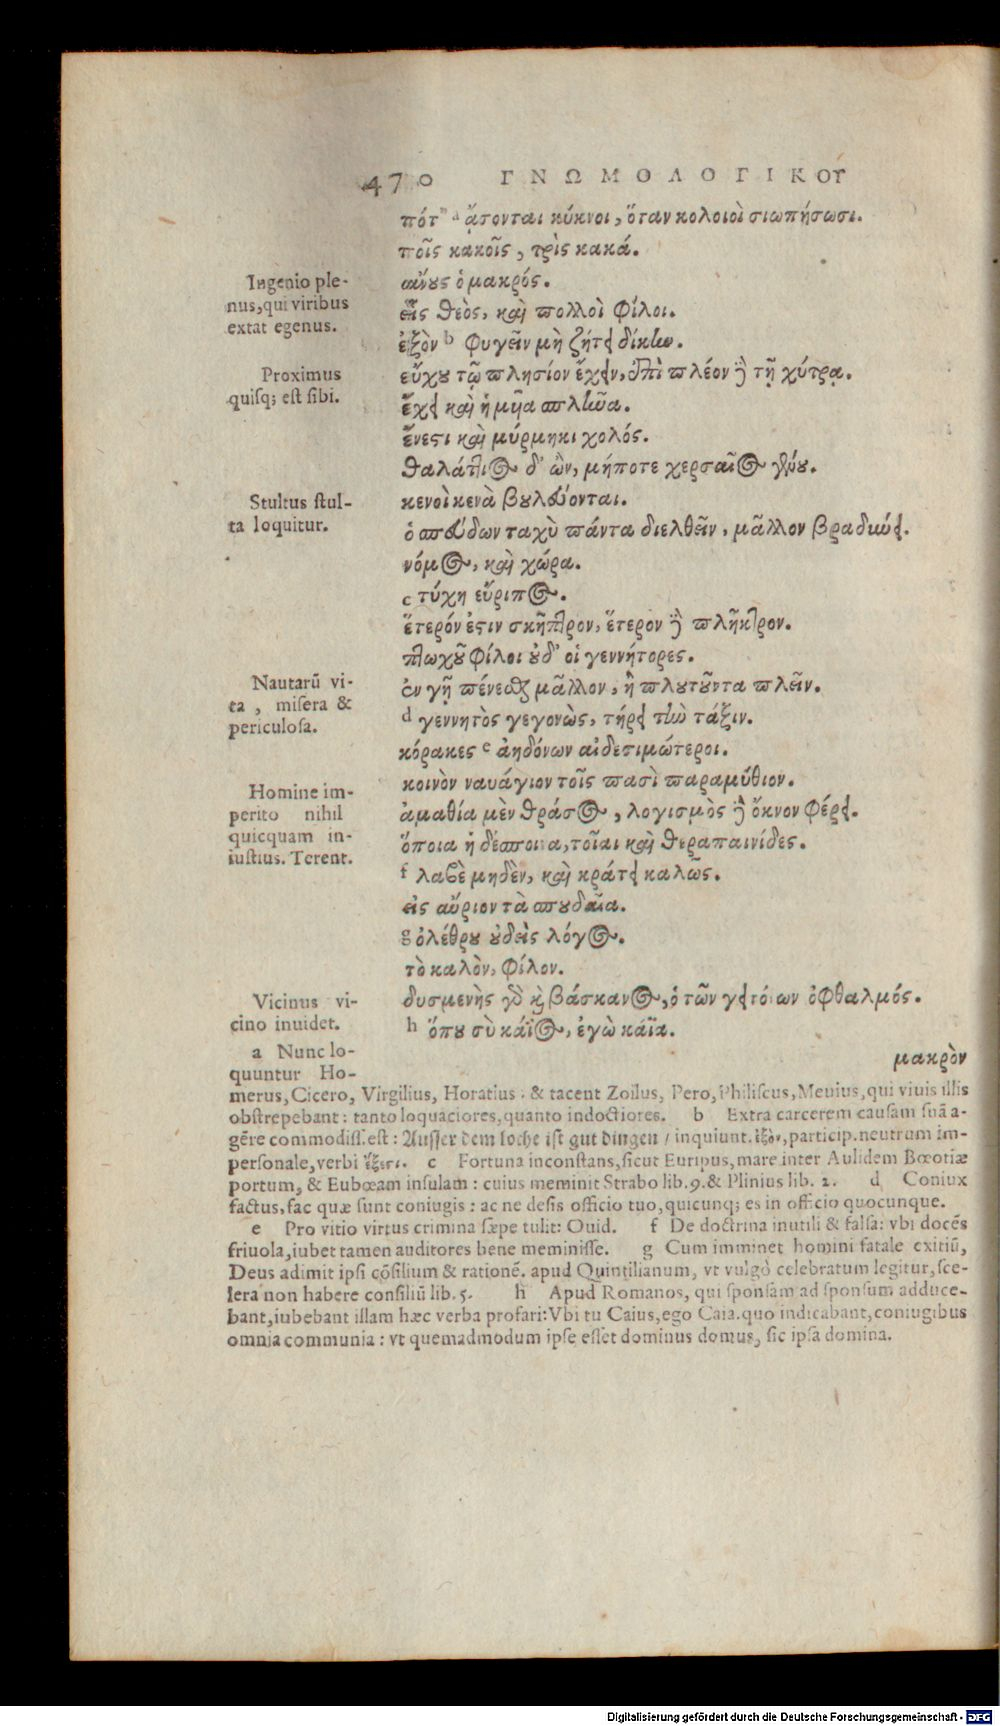 470 ΓΝΩΜΟΛΟΓΙΚΟΥ
πότ' a ᾄσονται κύκνοι, ὅταν κολοιοὶ σιωπήσωσι.
τοῖς κακοῖς, τρὶς κακά.
Ingenio ple-
nus, qui viribus
extat egenus.
ἄνους ὁ μακρός.
εἷς θεὸς, καὶ πολλοὶ φίλοι.
ἐξὸν b φυγεῖν μὴ ζήτει δίκην.
Proximus
quisq; est sibi.
εὔχου τῷ πλησίον ἔχειν, ἐπὶ πλέον δὲ τῇ χύτρᾳ.
ἔχει καὶ ἡ μυῖα σπλῆνα.
ἔνεστι καὶ μύρμηκι χολός.
θαλάττιος δ' ὢν, μήποτε χερσαῖος γένου.
Stultus stul-
ta loquitur.
κενοὶ κενὰ βουλεύονται.
ὁ σπεύδων ταχὺ πάντα διελθεῖν, μᾶλλον βραδύνει.
νόμος, καὶ χώρα.
c τύχη εὔριπος.
ἕτερόν ἐστιν σκῆπτρον, ἕτερον δὲ πλῆκτρον.
πτωχοῦ φίλοι οὐδ' οἱ γεννήτορες.
Nautarũ vi-
ta, misera &
periculosa.
ἐν γῇ πένεσθαι μᾶλλον, ἢ πλουτοῦντα πλεῖν.
d γεννητὸς γεγονὼς, τήρει τὴν τάξιν.
κόρακες e ἀηδόνων αἰδεσιμώτεροι.
κοινὸν ναυάγιον τοῖς πασὶ παραμύθιον.
Homine im-
perito nihil
quicquam in-
iustius. Terent.
ἀμαθία μὲν θράσος, λογισμὸς δὲ ὄκνον φέρει.
ὁποια ἡ δέσποινα, τοῖαι καὶ θεραπαινίδες.
f λαβὲ μηδὲν, καὶ κράτει καλῶς.
εἰς αὔριον τὰ σπουδαῖα.
g ὀλέθρου οὐδεὶς λόγος.
τὸ καλὸν, φίλον.
Vicinus vi-
cino inuidet.
δυσμενὴς γὸ καὶ βάσκανος, ὁ τῶν γειτόνων ὀφθαλμός.
h ὅπου σὺ κάϊος, ἐγὼ κάϊα.
μακρὸν
a Nunc lo-
quuntur Ho-
merus, Cicero, Virgilius, Horatius. & tacent Zoilus, Pero, Philiscus, Meuius, qui viuis illis
obstrepebant: tanto loquaciores, quanto indoctiores. b Extra carcerem causam suã a-
gẽre commodiss. est: Ausser dem loche ist gut dingen / inquiunt. ἐξὸν, particip. neutrum im-
personale, verbi ἔξεστι. c Fortuna inconstans, sicut Euripus, mare inter Aulidem Bœotiæ
portum, & Eubœam insulam: cuius meminit Strabo lib. 9. & Plinius lib. 2. d Coniux
factus, fac quæ sunt coniugis: ac ne desis officio tuo, quicunq; es in officio quocunque.
e Pro vitio virtus crimina sæpe tulit: Ouid. f De doctrina inutili & falsa: vbi docẽs
friuola, iubet tamen auditores bene meminisse. g Cum imminet homini fatale exitiũ,
Deus adimit ipsi cõsilium & rationẽ. apud Quintilianum, vt vulgò celebratum legitur, sce-
lera non habere consiliũ lib. 5. h Apud Romanos, qui sponsam ad sponsum adduce-
bant, iubebant illam hæc verba profari: Vbi tu Caius, ego Caia. quo indicabant, coniugibus
omnia communia: vt quemadmodum ipse esset dominus domus, sic ipsa domina.
Digitalisierung gefördert durch die Deutsche Forschungsgemeinschaft - DFG